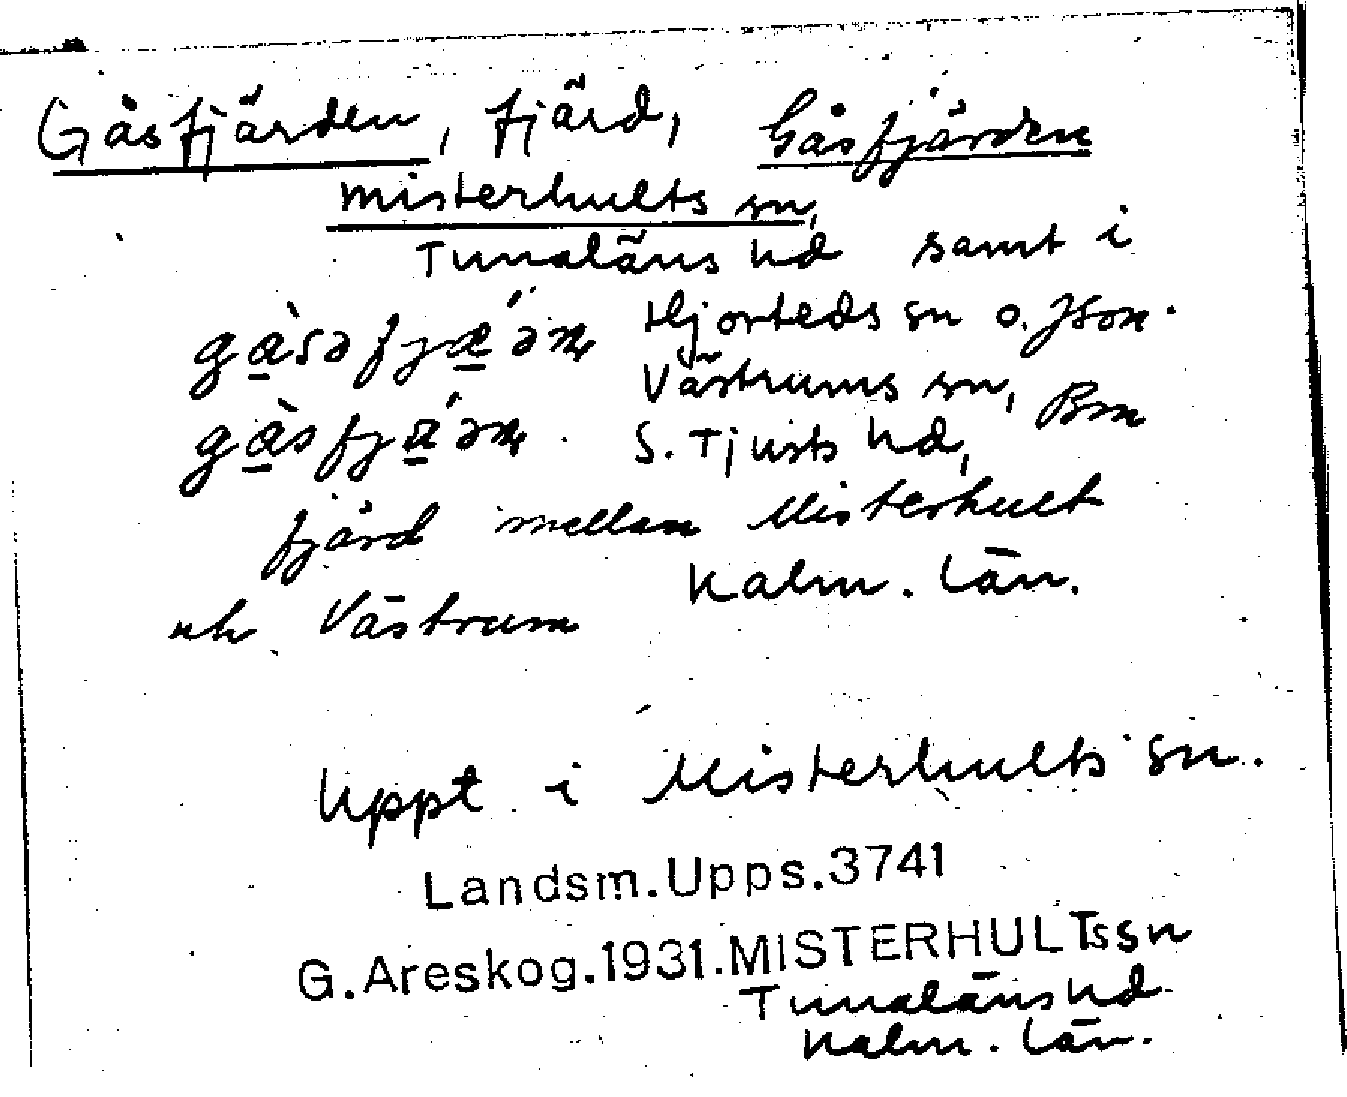 Gåsfjärden, fjärd, Gåsfjärden
Misterhults sn,
Tunaläns hd samt i
Hjorteds sn o.
Västrums sn,
S. Tjusts hd,
fjärd mellan Misterhult
Kalm. län.
och Västrum
Uppt i Misterhults sn.
Landsm.Upps.3741
G.Areskog.1931.MISTERHULTssn
Tunaläns hd
Kalm. län.